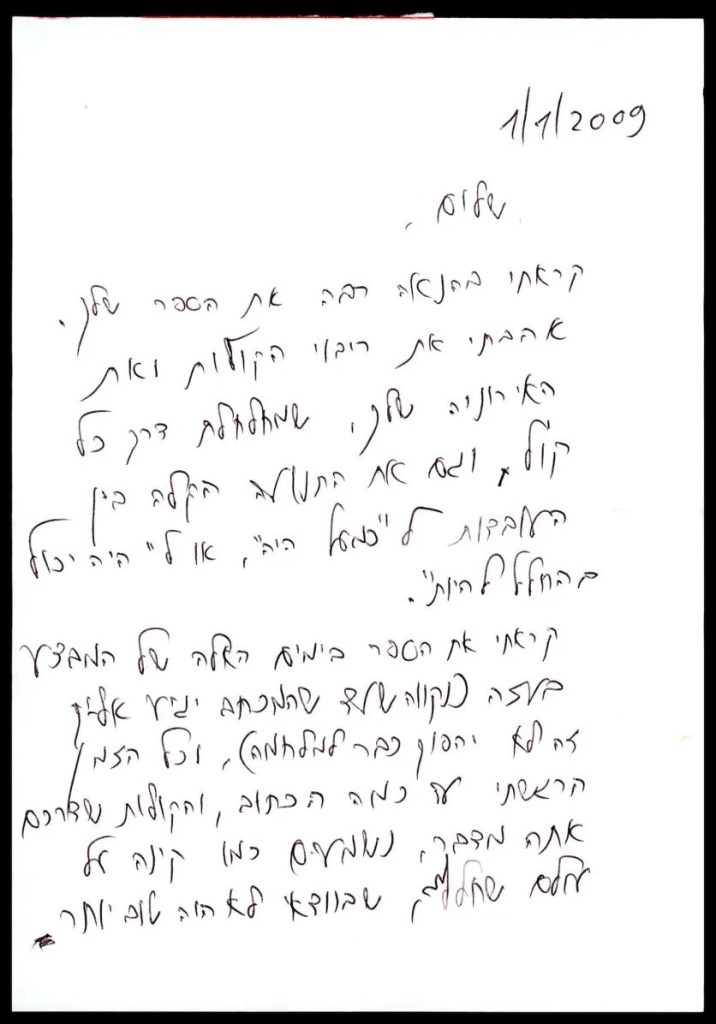 1/1/2009
שלום,
קראתי בהנאה רבה את הספר שלך.
אהבתי את ריבוי הקולות ואת
האירוניה שלך, שמחלחלת דרך כל
קול, וגם את התנועה הקלה בין
העובדות ל"כמעט היה", או ל"היה יכול
בהחלט להיות".
קראתי את הספר בימים האלה של המבצע
בעזה (נקווה שעד שהמכתב יגיע אליך
זה לא יהפוך כבר למלחמה), וכל הזמן
הרגשתי עד כמה הכתוב, והקולות שדרכם
אתה מדבר, נשמעים כמו קינה על
עולם שחלף, שבוודאי לא היה טוב יותר